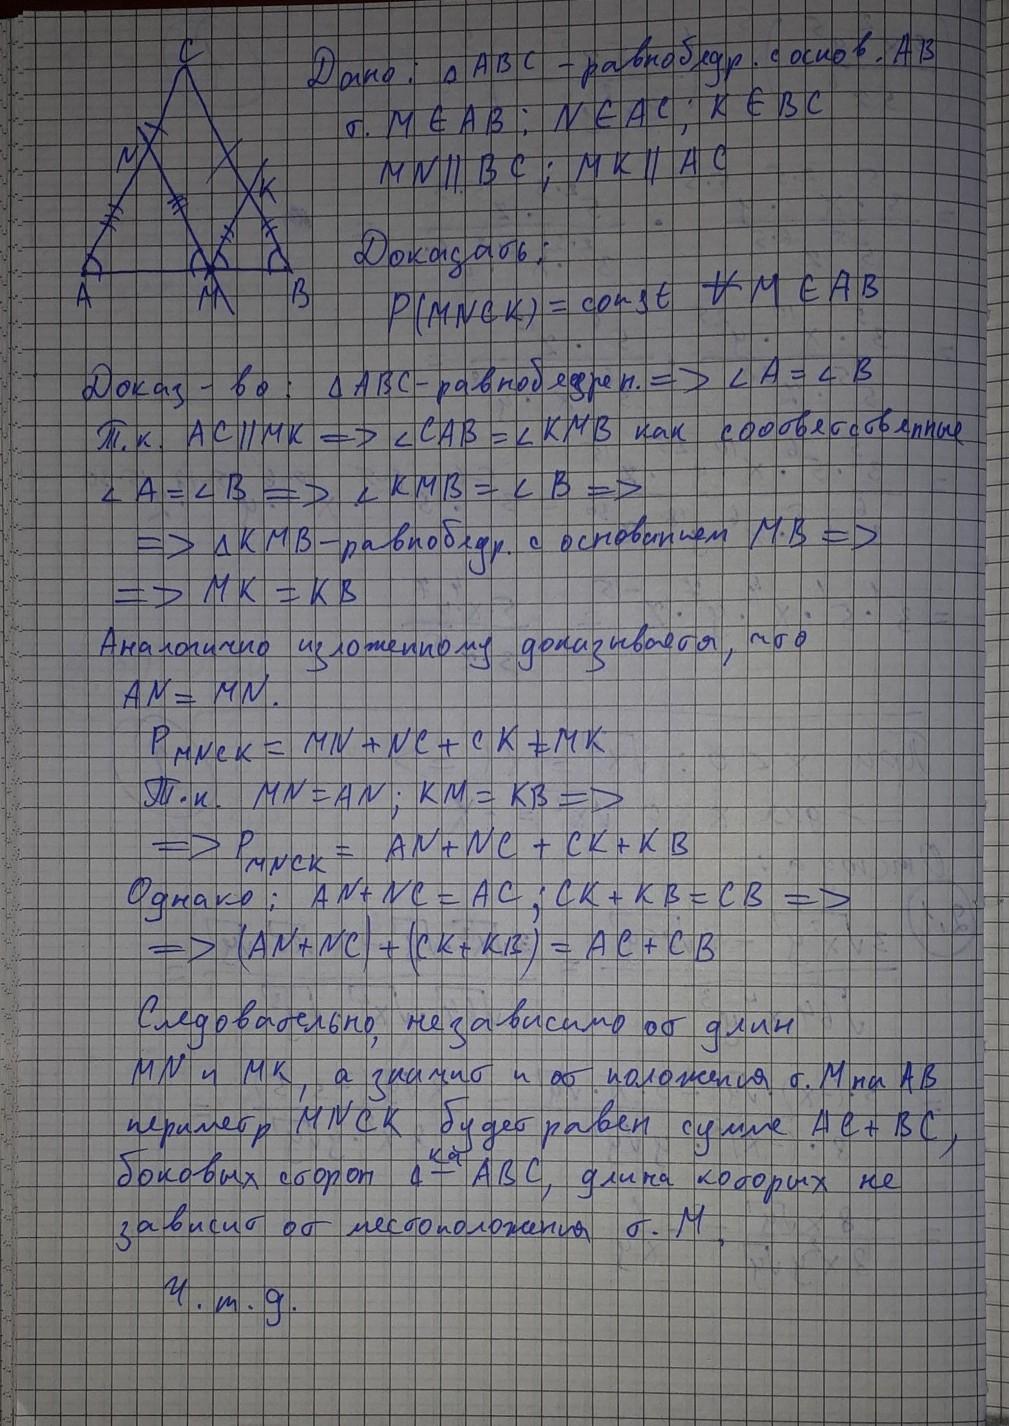 C
Дано: △ ABC - равнобедр. с основ. AB
т. M ∈ AB; N ∈ AC; K ∈ BC
N
MN || BC; MK || AC
K
Доказать:
A M B
P(MNCK) = const ∀ M ∈ AB
Доказ-во: △ABC - равнобедрен. => ∠A = ∠B
Т.к. AC || MK => ∠CAB = ∠KMB как соответственные
∠A = ∠B => ∠KMB = ∠B =>
=> △KMB - равнобедр. с основанием MB =>
=> MK = KB
Аналогично изложенному доказывается, что
AN = MN.
P MNCK = MN + NC + CK + MK
Т.к. MN = AN; KM = KB =>
=> P MNCK = AN + NC + CK + KB
Однако: AN + NC = AC; CK + KB = CB =>
=> (AN + NC) + (CK + KB) = AC + CB
Следовательно, независимо от длин
MN и MK, а значит и от положения т. M на AB
периметр MNCK будет равен сумме AC + BC,
боковых сторон △-ка ABC, длина которых не
зависит от местоположения т. M.
Ч.т.д.